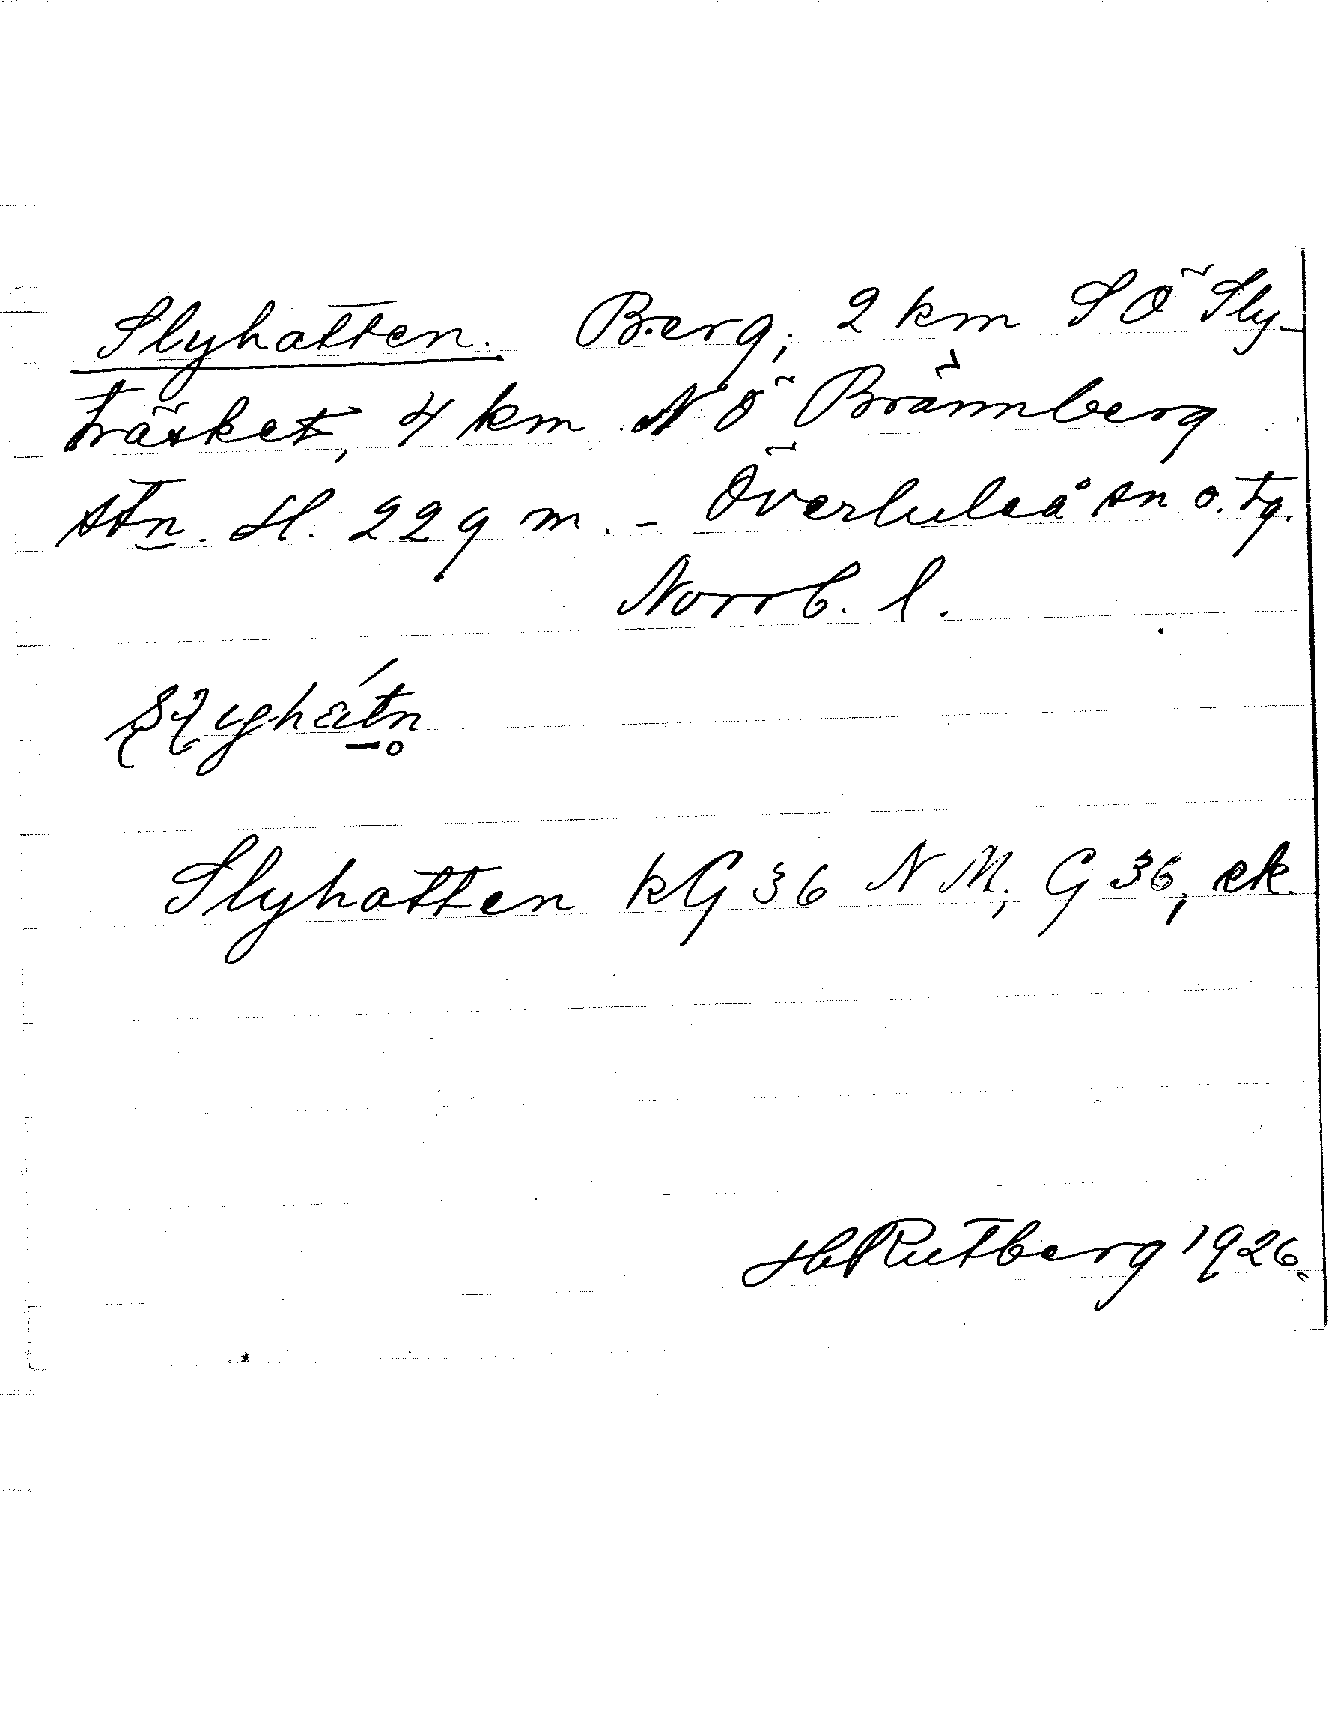 Slyhatten. Berg, 2 km SÖ Sly-
träsket, 4 km NÖ Brännberg
stn. H. 229 m. - Överluleå sn o. tg.
Norrb. l.
Slyhatten kG 36 NM, G 36, ek.
H Rutberg 1926.